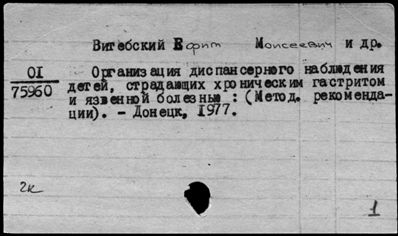 Витебский Ефим Моисеевич и др.
01
75960
Организация диспансерного наблюдения
детей, страдающих хроническим гастритом
и язвенной болезнью : (Метод. рекоменда-
ции). - Донецк, 1977.
2к
1